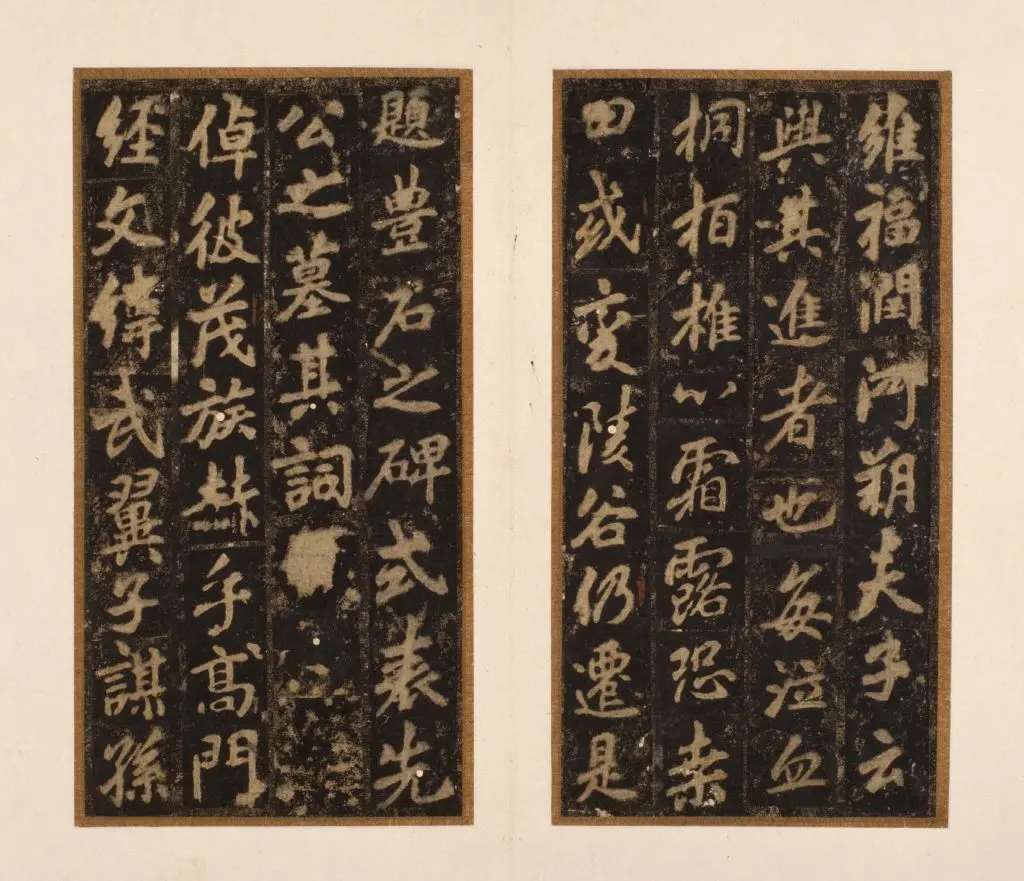 維福潤河朔夫子云
與其進者也每泣血
桐栢椎心霜露恐桒
田或變陵谷仍遷是
題豊石之碑式表先
公之墓其詞
倬彼茂族赫乎髙門
經文緯武翼子謀孫